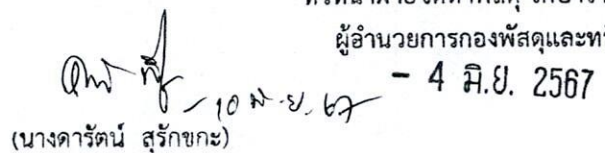 ผู้อำนวยการกองพัสดุและทรั
- 4 มิ.ย. 2567
10 มิ.ย. 67
(นางดารัตน์ สุรักขกะ)